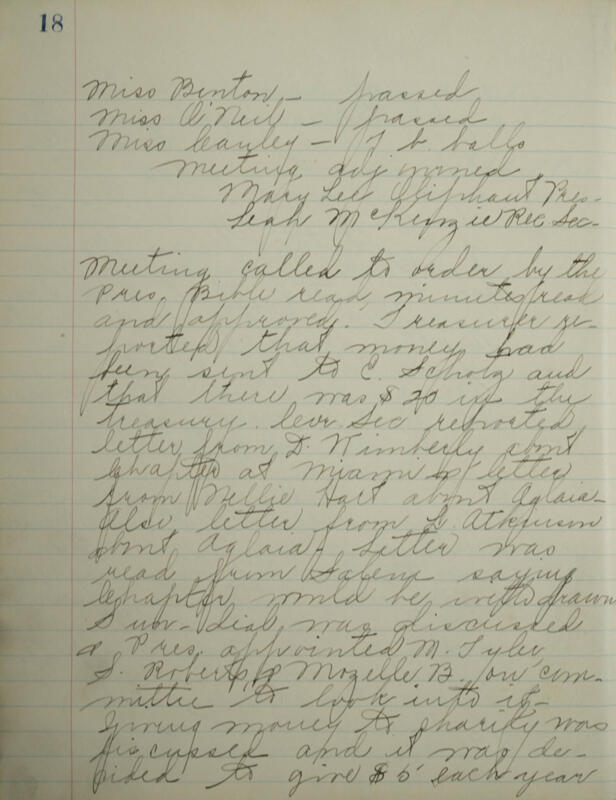 18
Miss Benton - passed
Miss O'Neil - passed
Miss Cauley - 7 b. balls
Meeting adjourned
Mary Lee Oliphant, Pres-
Leah McKenzie Rec Sec-
Meeting called to order by the
Pres, Bible read, minutes read
and approved. Treasurer re-
ported that money had
been sent to C. Scholz and
that there was $20 in the
treasury. Cor. Sec reported
letter from D. Kimberly abnt
Chapter at Miami & letter
from Nellie Hart about Aglaia-
Also letter from L. Atkinson
abnt Aglaia- Letter was
read from Salem saying
Chapter would be withdrawn
Sun-dial was discussed
& Pres. appointed M. Tyler,
S. Roberts, & Mozelle B. on com-
mittie to look into it-
Giving money to charity was
discussed and it was de-
cided to give $5 each year